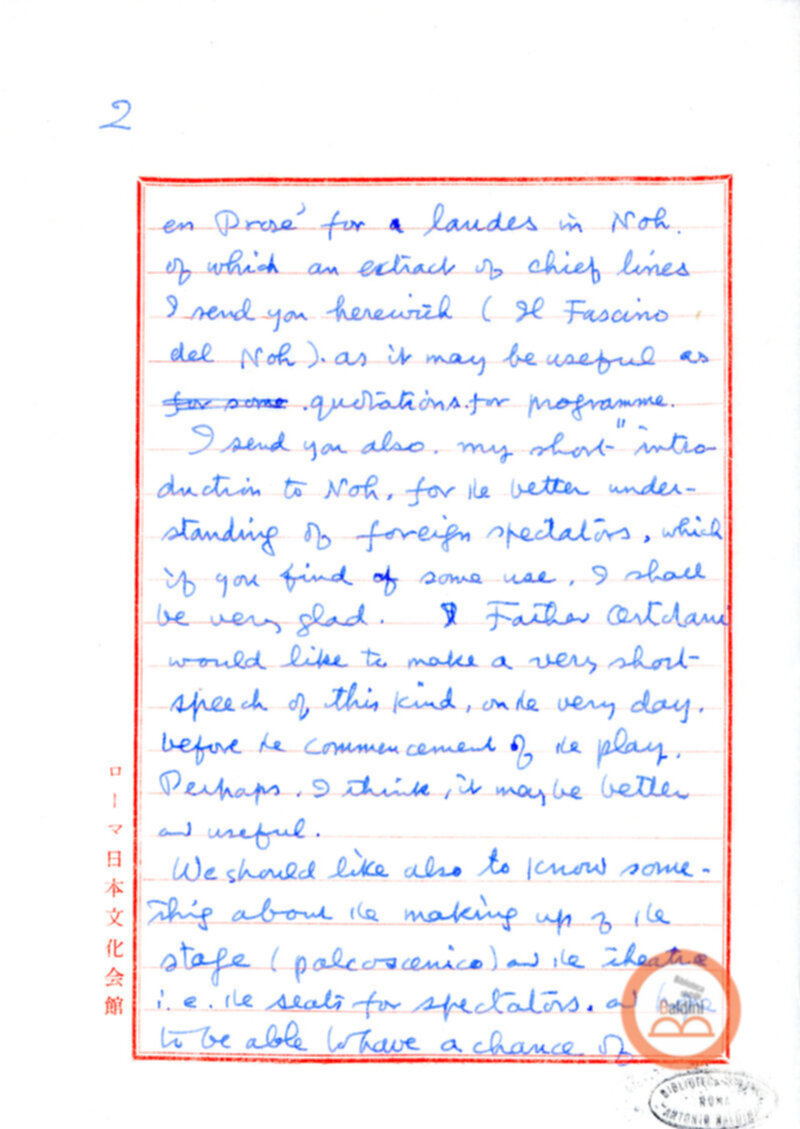 2
en Prosé for a laudes in Noh.
of which an extract of chief lines
I send you herewith ( Il Fascino
del Noh ). as it may be useful as
for some . quotations. for programme.
I send you also. my short " intro-
duction to Noh, for the better under-
standing of foreign spectators, which
if you find of some use, I shall
be very glad. Father
would like to make a very short
speech of this kind, on the very day.
before the commencement of the play.
Perhaps. I think, it may be better
and useful.
We should like also to know some-
thig about the making up of the
stage ( palcoscenico) and the theatre
i. e. the seats for spectators. and
to be able to have a chance of
ローマ日本文化会館
Biblioteca
Baldini
BIBLIOTECA
ROMA
ANTONIO BALDINI